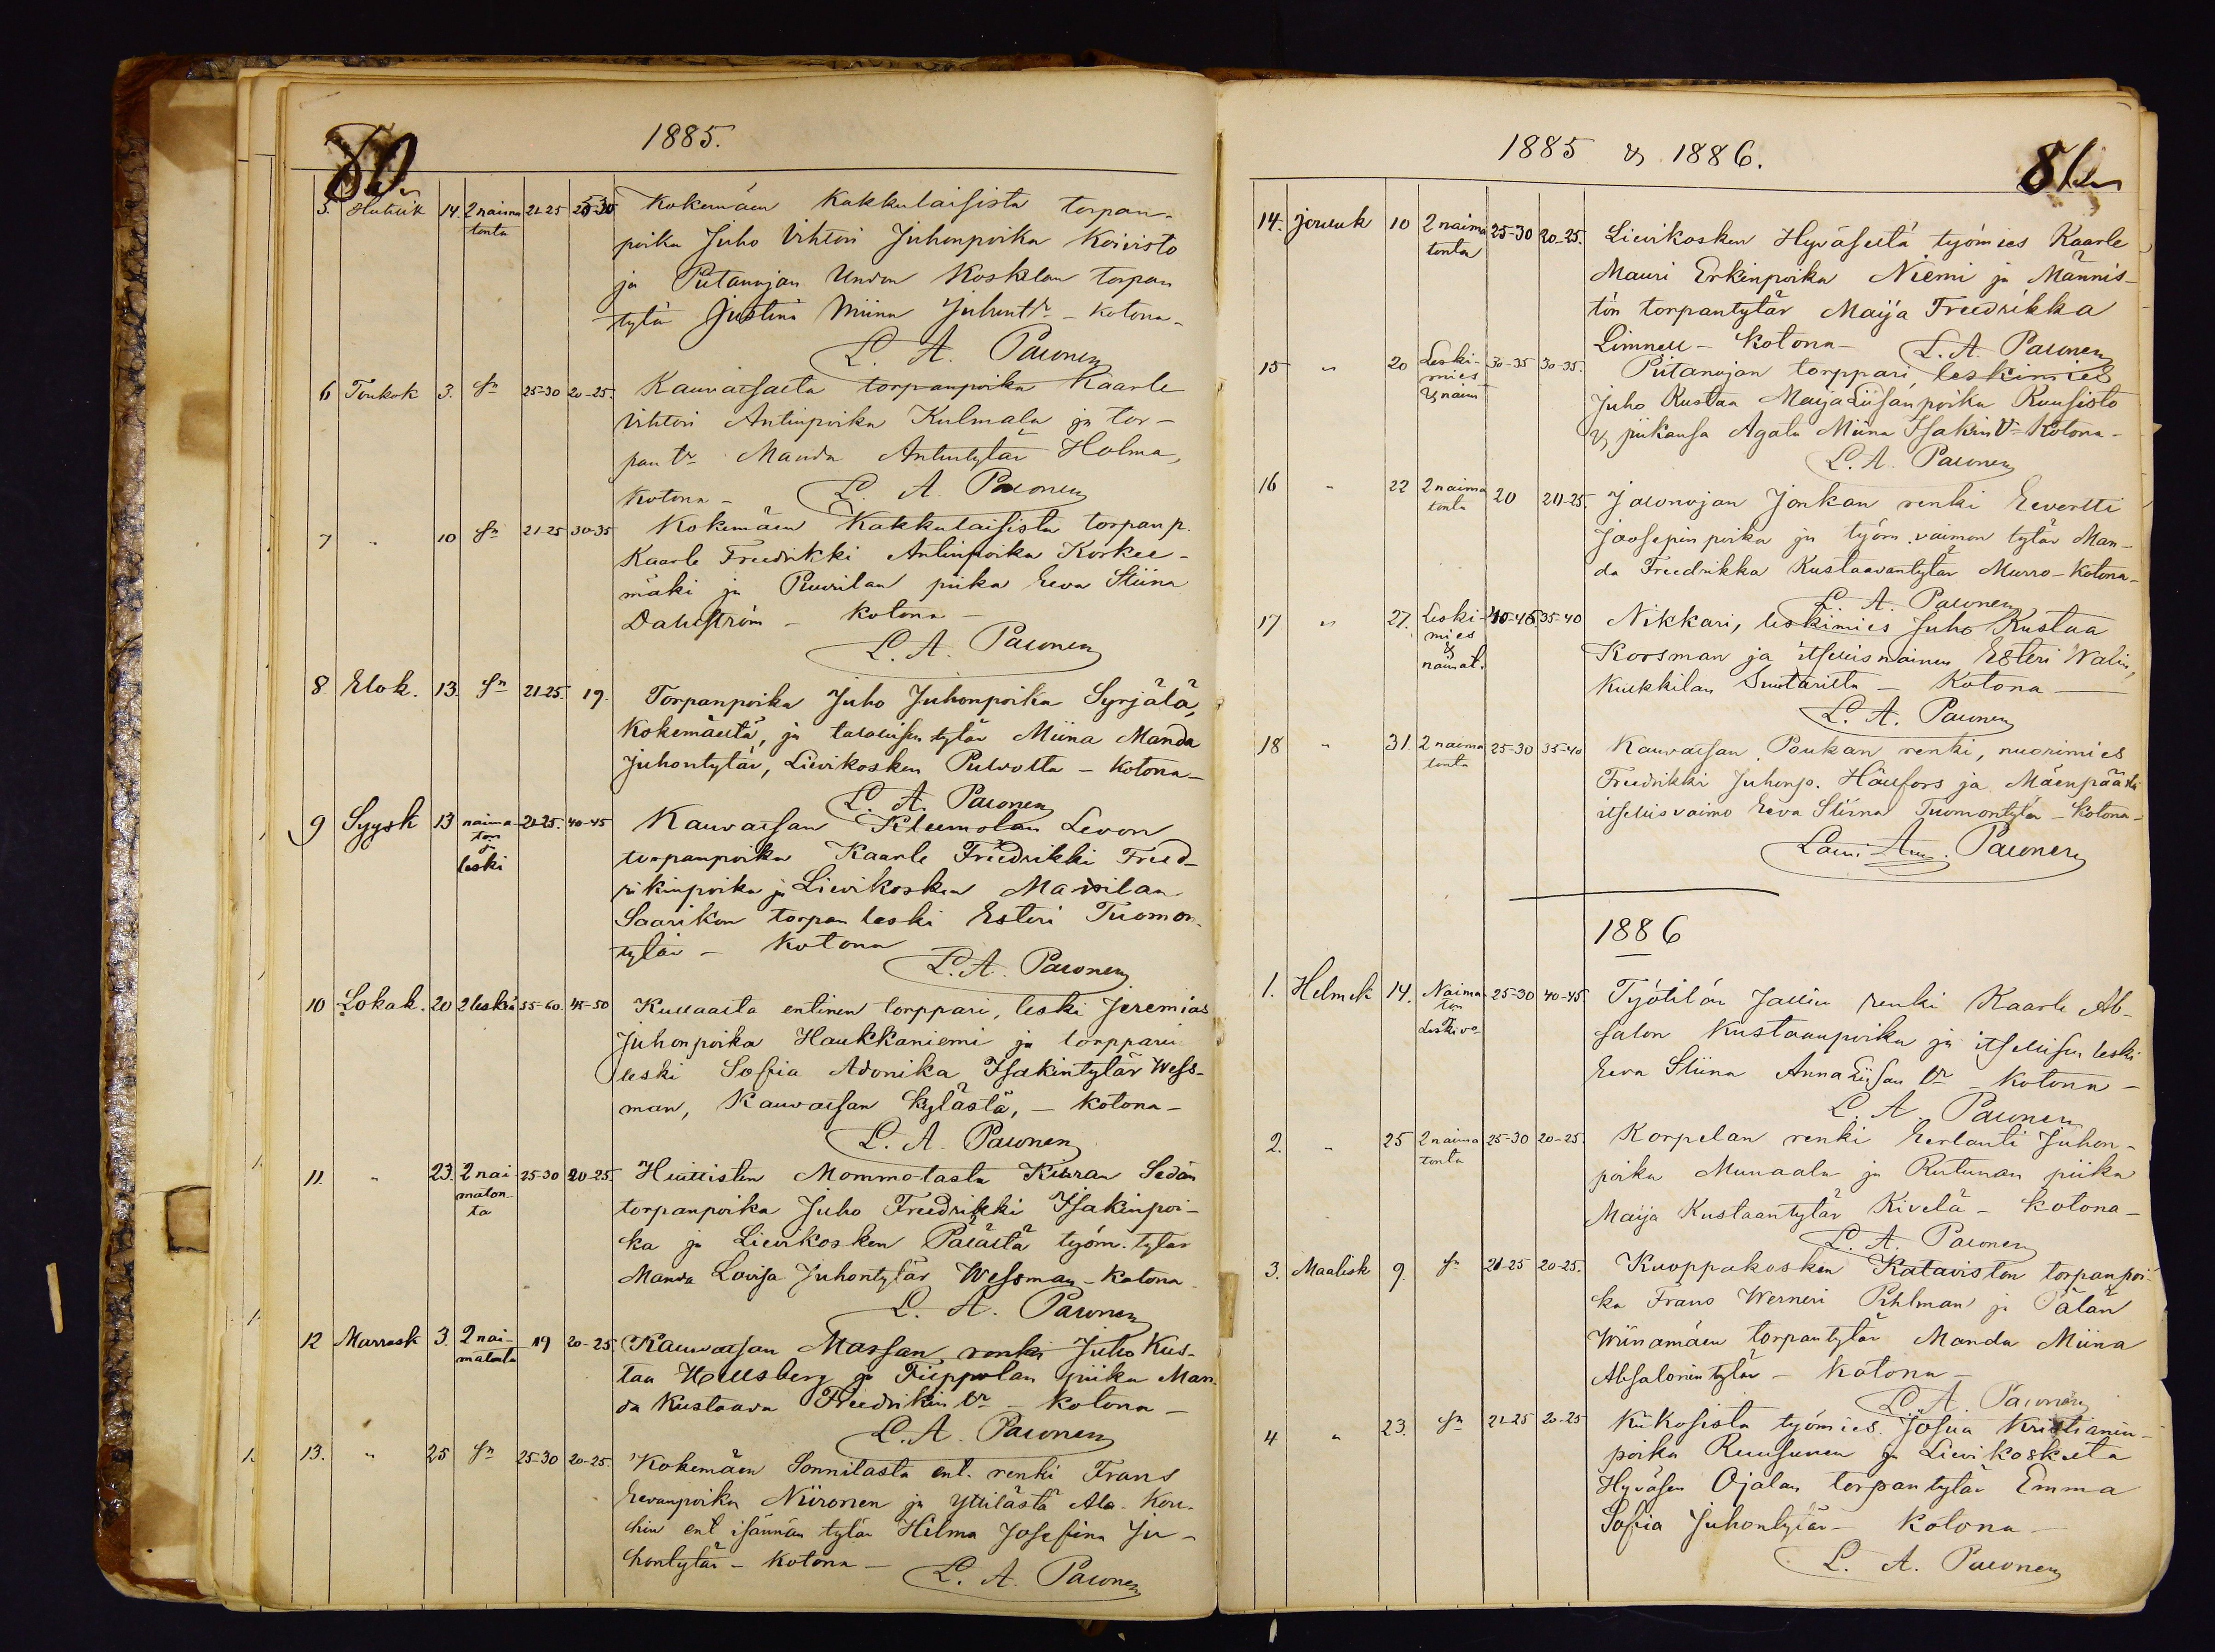 80
1885.
5. Huhtik 14. 2 naima tonta 21-25 25-30 Kokemäen Kakkulaisista torpan-
poika Juho Vihtori Juhonpoika Koivisto
ja Piitanojan Undon Kosklan torpan
tytär Justina Miina Juhontr - kotona -
L. A. Paconen
6 Toukok 3. sn 25-30 20-25. Kauvatsasta torpanpoika Kaarle
Vihtori Antinpoika Kulmala ja tor-
pan tr Manda Antintytär Holma,
kotona - L. A. Paconen
7 " 10 sn 21-25 30-35 Kokemäen Kakkulaisista torpan p.
Kaarle Freedrikki Antinpoika Korkee-
mäki ja Ruurilan piika Eeva Stiina
Dahlström - kotona -
L. A. Paconen
8. Elok. 13. sn 21-25. 19. Torpanpoika Juho Juhonpoika Syrjälä,
Kokemäeltä, ja talollisen tytär Miina Manda
Juhontytär, Lievikosken - kotona -
L. A. Paconen
9 Syysk 13 naima-ton & leski 21-25. 40-45 Kauvatsan Kleemolan Levon
torpanpoika Kaarle Freedrikki Freed-
rikinpoika ja Lievikosken Mattilan
Saarikon torpan leski Esteri Tuomon
tytär - kotona
L. A. Paconen
10 Lokak. 20 2 leskeä 55-60. 45-50 Kullaalta entinen torppari, leski Jeremias
Juhonpoika Haukkaniemi ja torpparin
leski Sofia Adonika Isakintytär Wess-
man, Kauvatsan kylästä, - kotona -
L. A. Paconen
11. " 23. 2 nai maton-ta 25-30 20-25. Huittisten Mommolasta Kiuran Sedän
torpanpoika Juho Freedrikki Isakinpoi-
ka ja Lievikosken työm. tytär
Manda Lovisa Juhontytär Wessman - Kotona -
L. A. Paconen
12 Marrask 3. 2 nai-matonta 19 20-25. Kauvatsan Massan renki Juho Kus-
taa Hellsberg ja Piippolan piika Man-
da Kustaava Freedrikin tr - kotona -
L. A. Paconen
1. 13. " 25 sn 25-30 20-25. Kokemäen Sonnilasta ent. renki Frans
Eevanpoika Niironen ja Yttilästä Ala-Kou-
hin ent isännän tytär Hilma Josefina Ju-
hontytär - kotona -
L. A. Paconen
1885 & 1886.
81
14. Jouluk 10 2 naima tonta 25-30 20-25. Lievikosken Hyväseltä työmies Kaarle
Mauri Erkinpoika Niemi ja Männis-
tön torpantytär Maija Freedrikka
Limnell - kotona - L. A. Paconen
15 " 20 Leski-mies & naim 30-35 30-35. Piitanojan torppari, leskimies
Juho Kustaa Maija Liisanpoika Kuusisto
& piikansa Agata Miina Isakin tr - Kotona -
L. A. Paconen
16 " 22 2 naima tonta 20 20-25. Jalonojan Jonkan renki Eevertti
Joosepin poika ja työm. vaimon tytär Man-
da Freedrikka Kustaavantytär Murro - Kotona -
L. A. Paconen
17 " 27. Leski-mies & naimat. 40-45 35-40 Nikkari, leskimies Juho Kustaa
Korsman ja itsellisnainen Esteri Walin,
Kulkkilan Suutarilta - Kotona -
L. A. Paconen
18 " 31. 2 naima tonta 25-30 35-40 Kauvatsan Paukan renki, nuorimies
Freedrikki Juhonp. Hällfors ja Mäenpäästä
itsellisvaimo Eeva Stiina Tuomontytär - kotona -
Lauri Paconen
1886
1. Helmik 14. Naima ton Leskivo 25-30 40-45 Työtilän Jallin renki Kaarle Ab-
salon Kustaanpoika ja itsellisen leski
Eeva Stiina Anna Liisan tr - Kotona -
L. A. Paconen
2. " 25 2 naima tonta 25-30 20-25. Korpelan renki Eerlanti Juhon-
poika Munaala ja Rutunan piika
Maija Kustaantytär Kivelä - kotona -
L. A. Paconen
3. Maalisk 9. sn 21-25 20-25. Kuoppakosken Kataviston torpanpoi-
ka Frans Werneri Pihlman ja Pälän
Wiinamäen torpantytär Manda Miina
Absalomintytär - Kotona -
L. A. Paconen
4 " 23. sn 21-25 20-25 Kiikosista työmies Josua Kristianin-
poika Ruusunen ja Lievikoskelta
Hyväsen Ojalan torpantytär Emma
Sofia Juhontytär - kotona -
L. A. Paconen